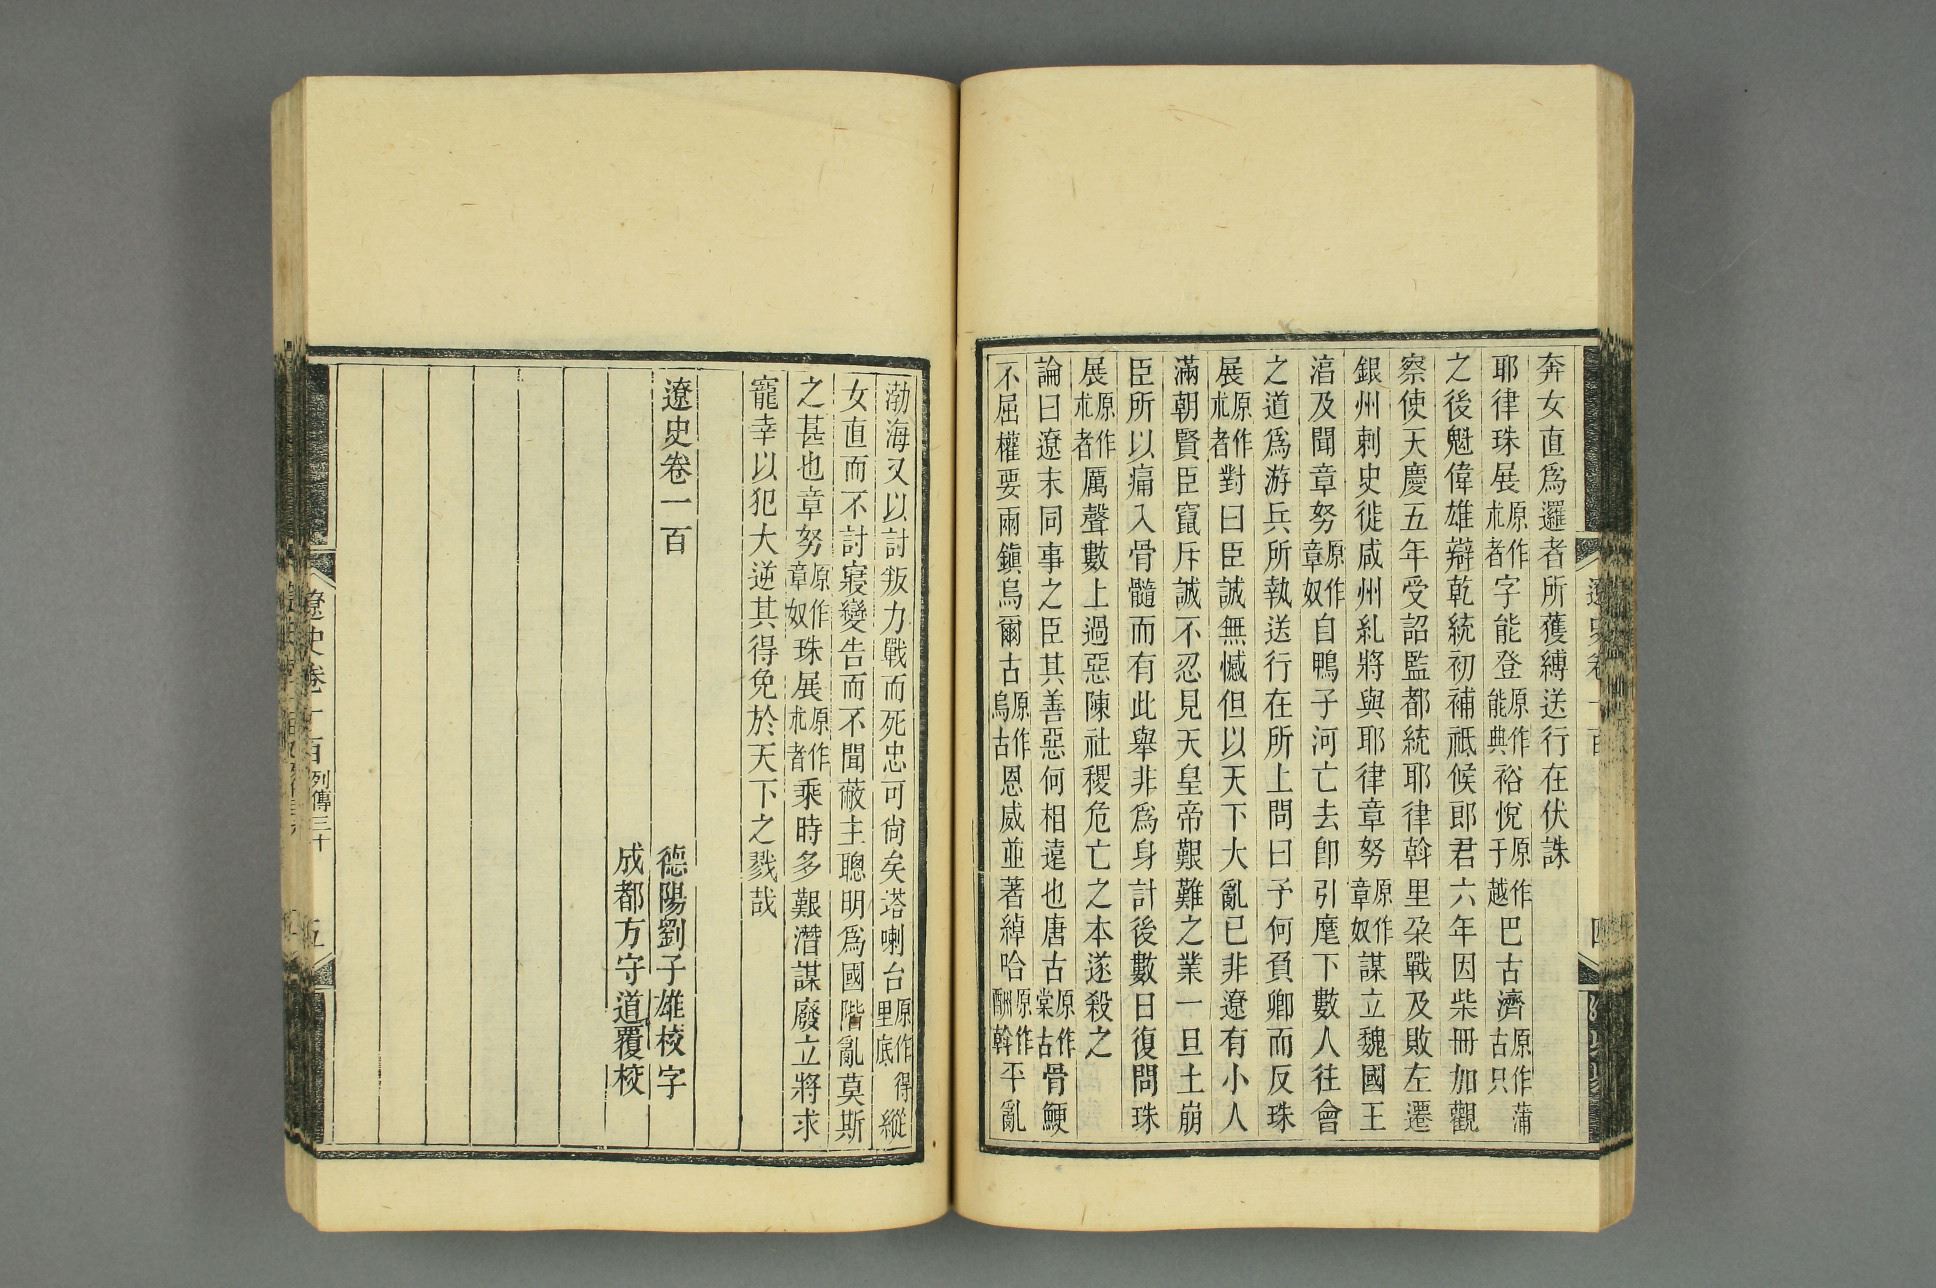 奔女直爲邏者所獲縛送行在伏誅
耶律珠展原作朮者字能登原作能典裕悅原作于越巴古濟原作蒲古只
之後魁偉雄辯乾統初補祗候郎君六年因柴冊加觀
察使天慶五年受詔監都統耶律斡里朶戰及敗左遷
銀州刺史徙咸州糺將與耶律章努原作章奴謀立魏國王
淯及聞章努原作章奴自鴨子河亡去卽引麾下數人往會
之道爲游兵所執送行在所上問曰予何負卿而反珠
展原作朮者對曰臣誠無憾但以天下大亂已非遼有小人
滿朝賢臣竄斥誠不忍見天皇帝艱難之業一旦土崩
臣所以痛入骨髓而有此舉非爲身計後數日復問珠
展原作朮者厲聲數上過惡陳社稷危亡之本遂殺之
論曰遼末同事之臣其善惡何相遠也唐古原作棠古骨鯁
不屈權要兩鎭烏爾古原作烏古恩威並著綽哈原作酬斡平亂
渤海又以討叛力戰而死忠可尙矣塔喇台原作里底得縱
女直而不討寢變告而不聞蔽主聰明爲國階亂莫斯
之甚也章努原作章奴珠展原作朮者乘時多艱潛謀廢立將求
寵幸以犯大逆其得免於天下之戮哉
遼史卷一百
德陽劉子雄校字
成都方守道覆校
遼史卷一百 列傳三十
五